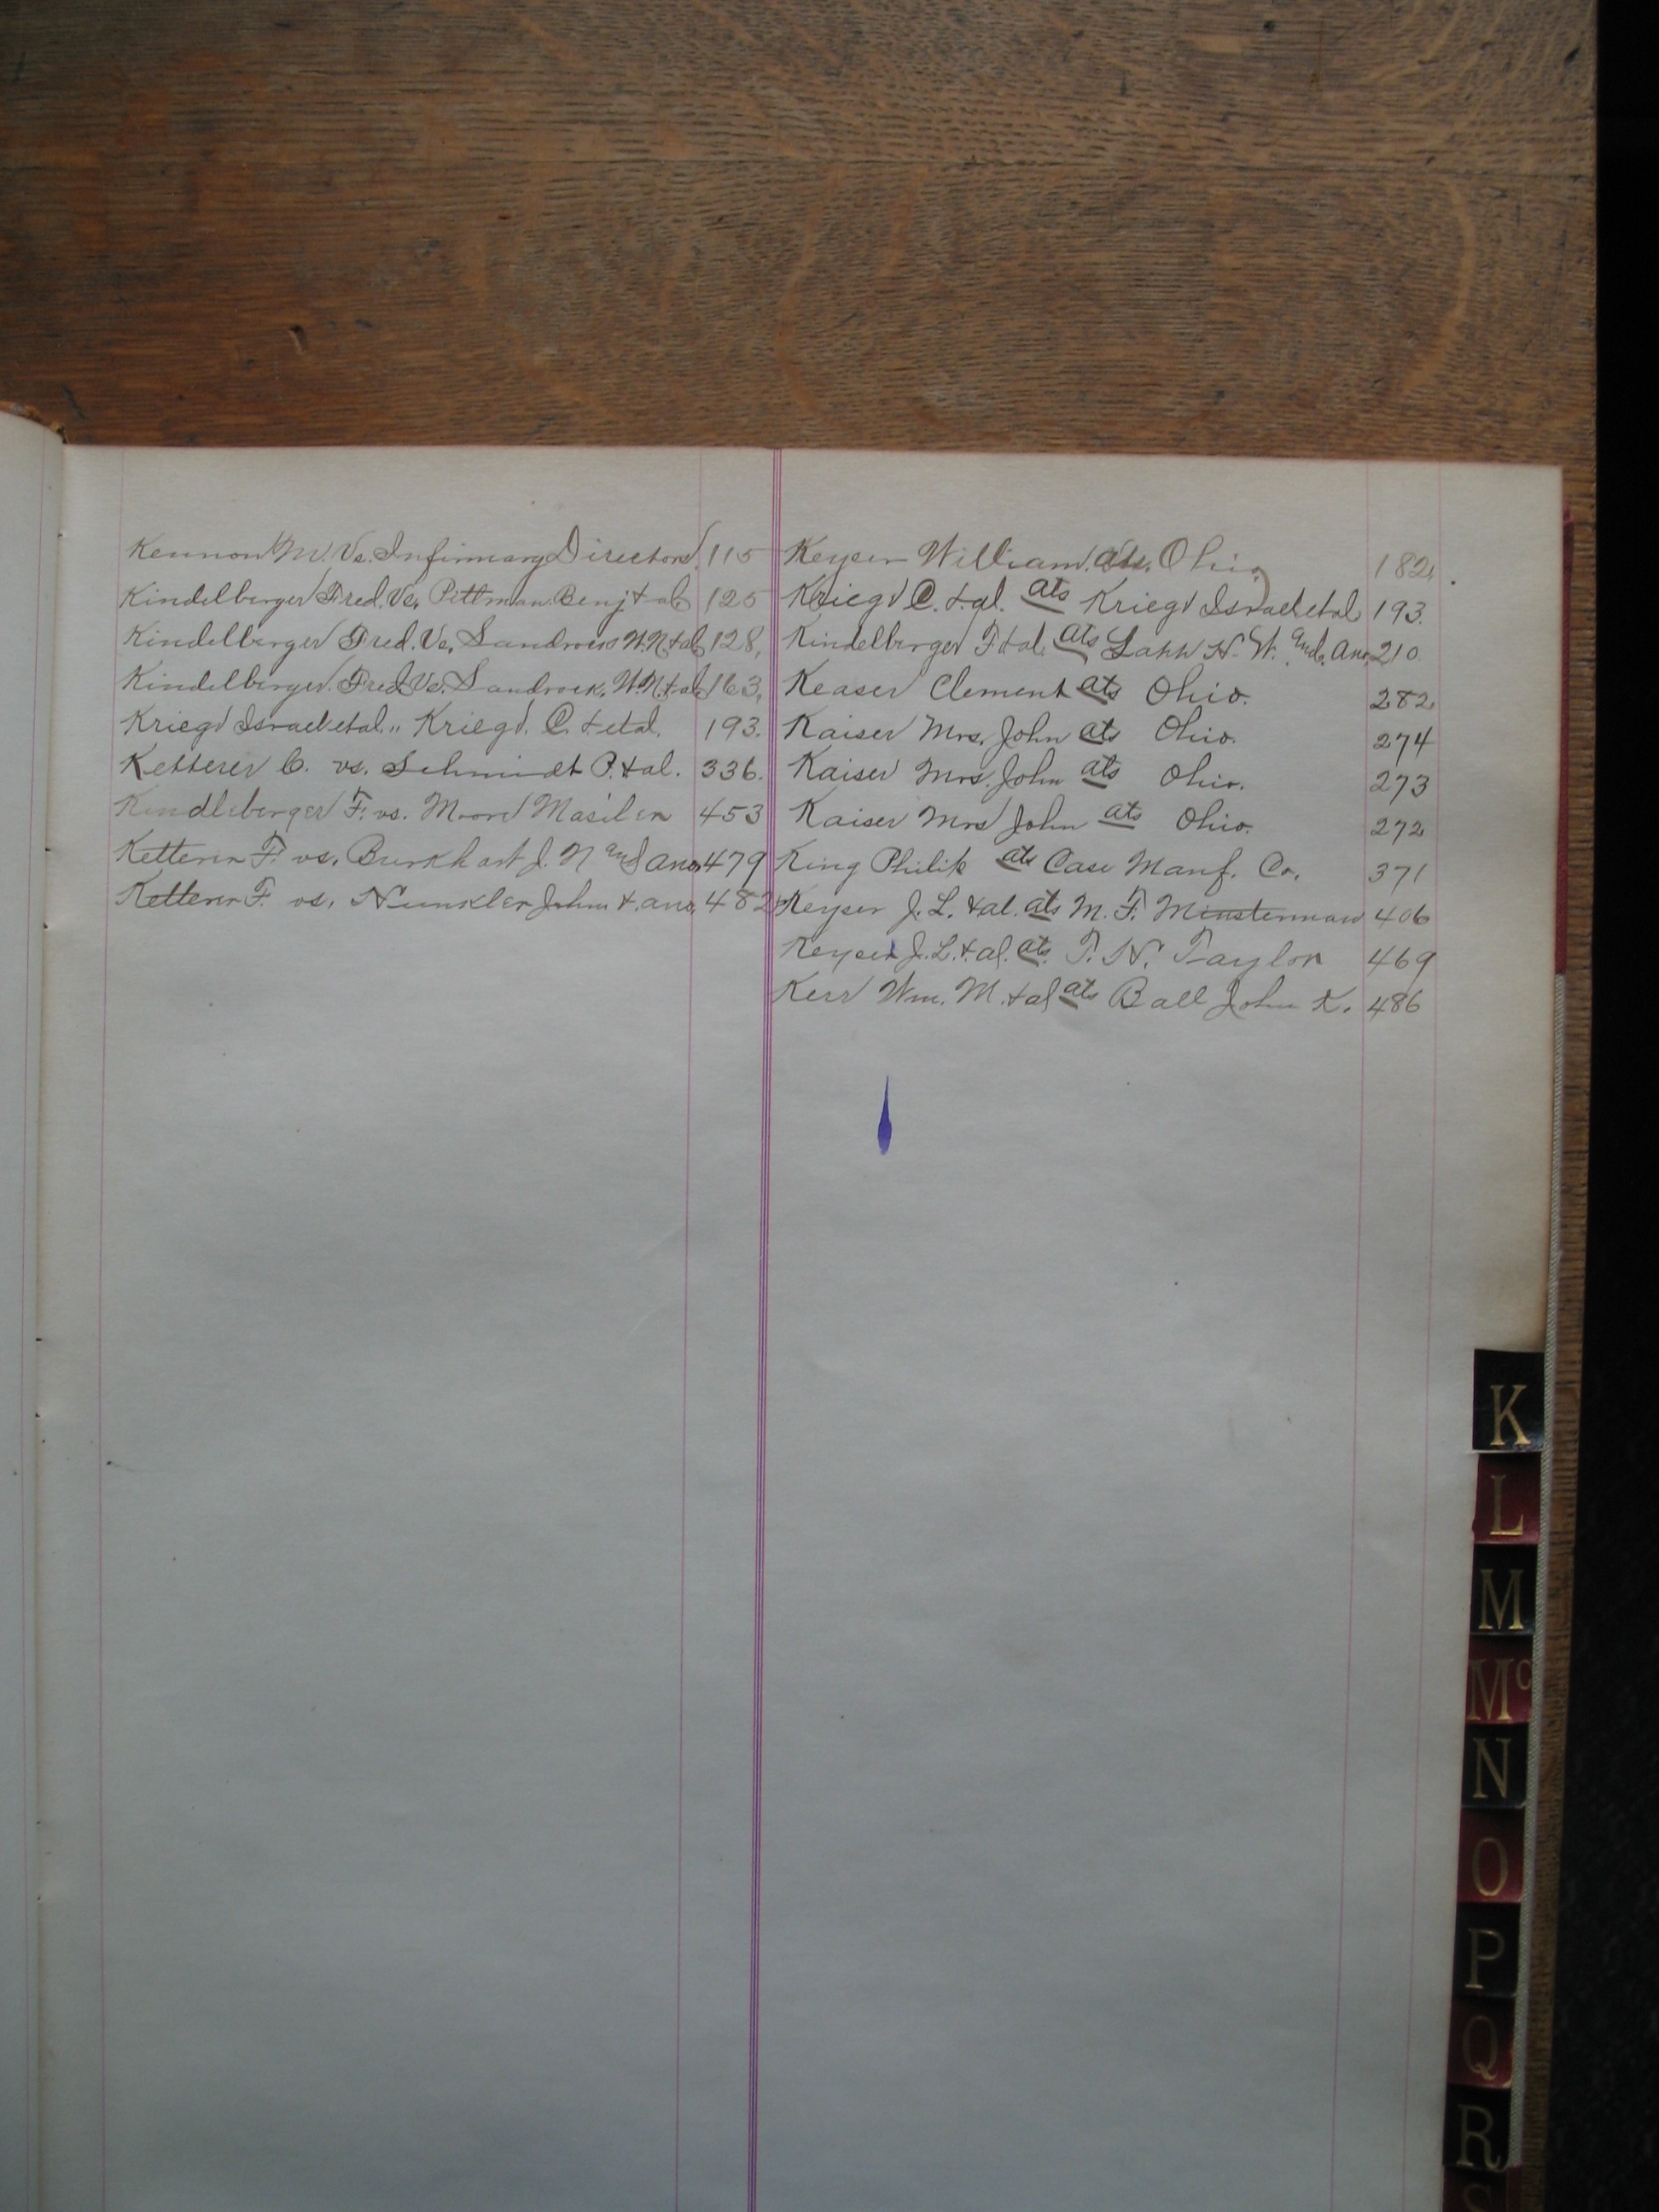 Kennon M. Vs. Infirmary Directors. 115
Kindelberger Fred. Vs. Pittman Benj & al 125
Kindelberger Fred. Vs. W. N. & al 128.
Kindelberger. Fred. Vs. Sandrock. W. N. & al 163.
Kriegr Israel et al. " Kriegr. C. & et al. 193.
Ketterer C. vs. Schmidt P. & al. 336.
Kindleberger F. vs. Moore 453
Ketterer F. vs. Burkhart J. N and ano. 479
Ketterer F. vs. Nunkler John & ano. 482
Keyser William. ats. Ohio 182.
Kriegr C. & al. ats Kriegr Israel et al 193.
Kindelberger F & al. ats Lahh H. W. and ano. 210
Keaser Clement ats Ohio. 282
Kaiser Mrs. John ats Ohio. 274
Kaiser Mrs. John ats Ohio. 273
Kaiser Mrs John ats Ohio. 272
King Philip ats Case Manf. Co. 371
Keyser J. L. & al. ats M. F. Minsterman 406
Keyser J. L. & al. ats. T. N. Taylor 469
Kerr Wm. M. & al ats Ball John K. 486
K
L
M
Mc
N
O
P
Q
R